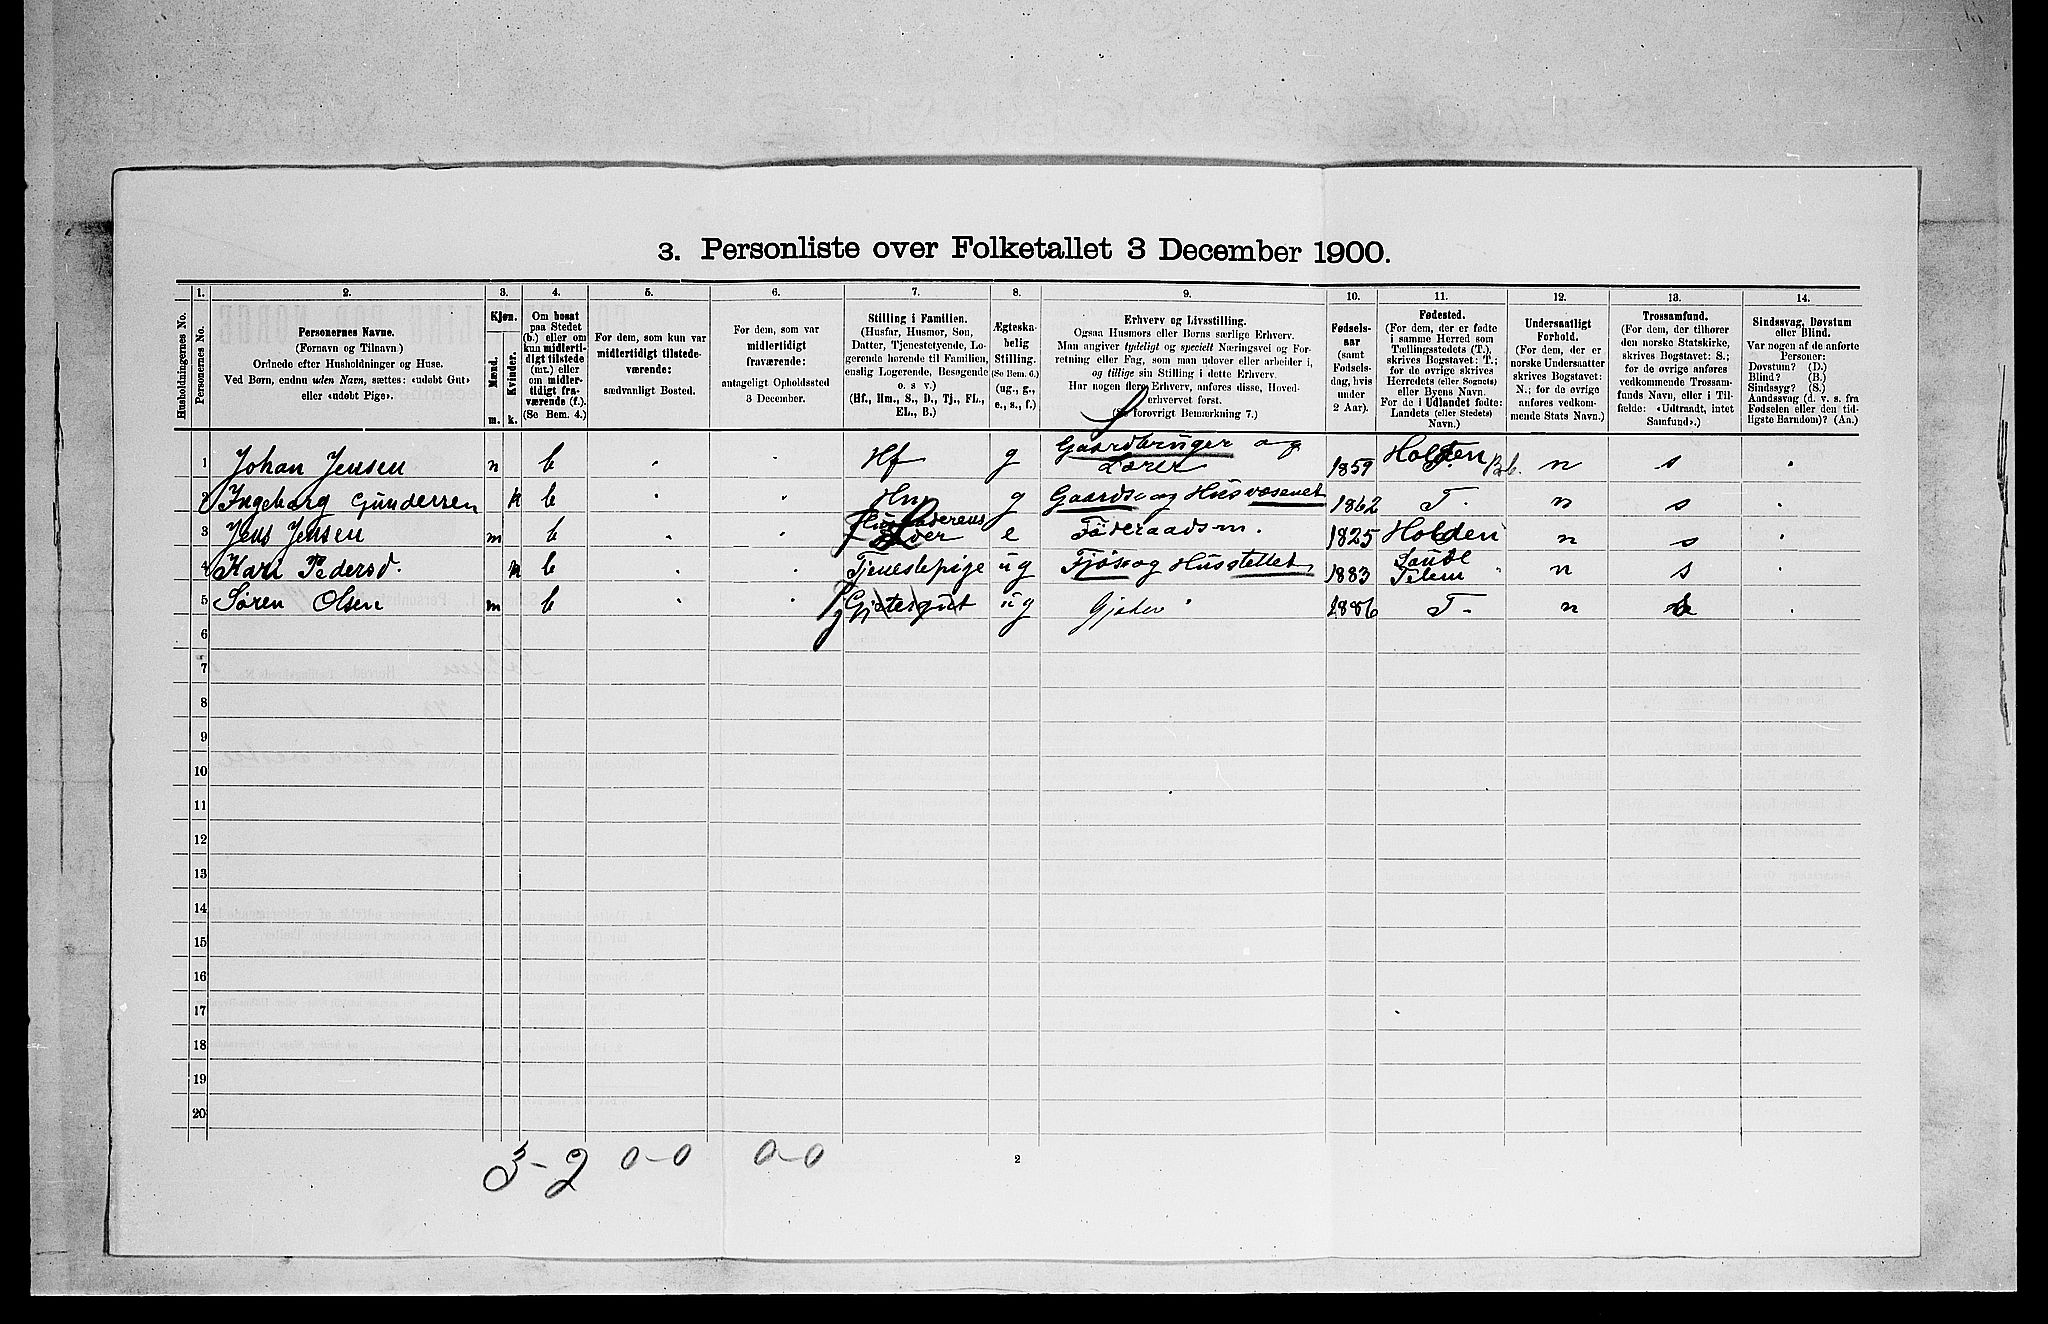 3. Personliste over Folketallet 3 December 1900.
Husholdningernes No.
1.
Personernes No.
2.
Personernes Navne.
(Fornavn og Tilnavn)
Ordnede efter Husholdninger og Huse.
Ved Børn, endnu uden Navn, sættes: «udøbt Gut»
eller «udøbt Pige».
3.
Kjøn.
Mænd.
Kvinder.
m. k.
4.
Om bosat
paa Stedet
(b.) eller om
kun midlerti-
digt tilstede
(mt.) eller
om midler-
tidigt fra-
værende (f.).
(Se Bem. 4.)
5.
For dem, som kun var
midlertidigt tilstede-
værende:
sædvanligt Bosted.
6.
For dem, som var
midlertidigt
fraværende:
antageligt Opholdssted
3 December.
7.
Stilling i Familien.
(Husfar, Husmor, Søn,
Datter, Tjenestetyende, Lo-
gerende hørende til Familien,
enslig Logerende, Besøgende
o. s v.)
(Hf., Hm., S., D., Tj., FL.,
EL., B.)
8.
Ægteska-
belig
Stilling.
(Se Bem. 6.)
(ug., g.,
e., s., f.)
9.
Erhverv og Livsstilling.
Ogsaa Husmors eller Børns særlige Erhverv.
Man angiver tydeligt og specielt Næringsvei og For-
retning eller Fag, som man udøver eller arbeider i,
og tillige sin Stilling i dette Erhverv.
Har nogen flere Erhverv, anføres disse, Hoved-
erhvervet først.
(Se forøvrigt Bemærkning 7.)
10.
Fødsels-
aar
(samt
Fødsels-
dag, hvis
under
2 Aar).
11.
Fødested.
(For dem, der er fødte
i samme Herred som
Tællingsstedets (T.),
skrives Bogstavet: T.;
for de øvrige skrives
Herredets (eller Sognets)
eller Byens Navn.
For de i Udlandet fødte:
Landets (eller Stedets)
Navn.)
12.
Undersaatligt
Forhold.
(For dem, der er
norske Undersaatter
skrives Bogstavet:
N.; for de øvrige
anføres vedkom-
mende Stats Navn.)
13.
Trossamfund.
(For dem, der tilhører
den norske Statskirke,
skrives Bogstavet: S.;
for de øvrige anføres
vedkommende Trossam-
funds Navn, eller i Til-
fælde: «Udtraadt, intet
Samfund».)
14.
Sindssvag, Døvstum
eller Blind.
Var nogen af de anførte
Personer:
Døvstum? (D.)
Blind? (B.)
Sindssyg? (S.)
Aandssvag (d. v. s. fra
Fødselen eller den tid-
ligste Barndom)? (Aa.)
1 Johan Jensen m b Hf g Gaardbruger og Lærer 1859 Holden n s
2 Ingeborg Gundersen k b Hm g Gaards og Husvæsenet 1862 T. n s
3 Jens Jensen m b Husfaderens e Føderaadsm. 1825 Holden n s
4 Kari Pedersd. k b Tjenestepige ug Fjøs og Husstellet 1883 Saude Telem n s
5 Søren Olsen m b Tj Gjætergut ug Gjæter 1886 T. n s
6
7
8
9
10
11
12
13
14
15
16
17
18
19
20
3-2 0-0 0-0
2